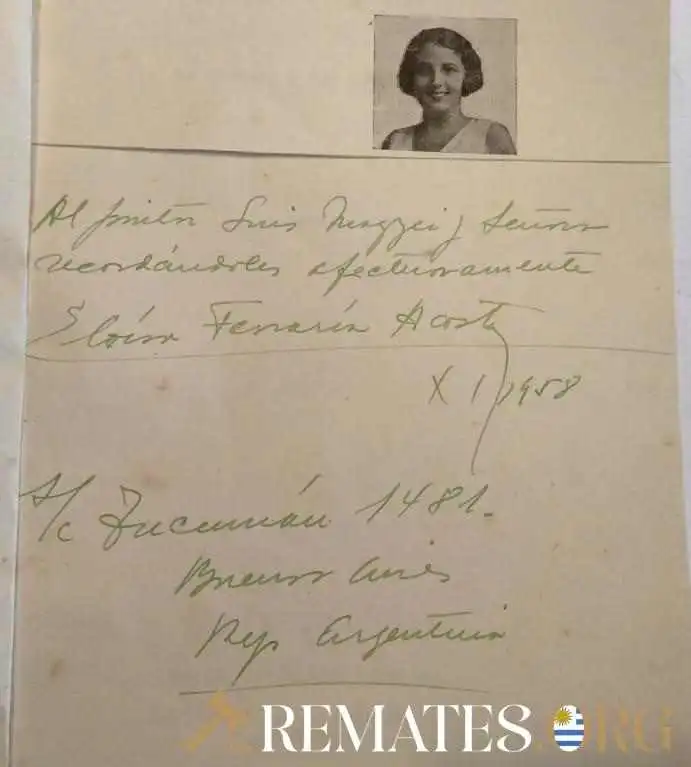 Al pintor Luis Mazzei y Señora
recordándoles afectuosamente
Eloísa Ferraría Acosta
XI 1958
s/c Tucumán 1481.
Buenos Aires
Rep Argentina
REMATES.ORG